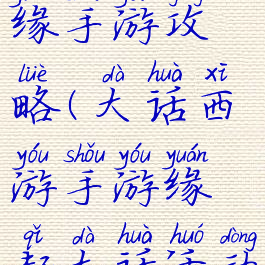 缘手游攻
lüè dà huà xī
略(大话西
yóu shǒu yóu yuán
游手游缘
qǐ dà huà huó dòng
起大话活动